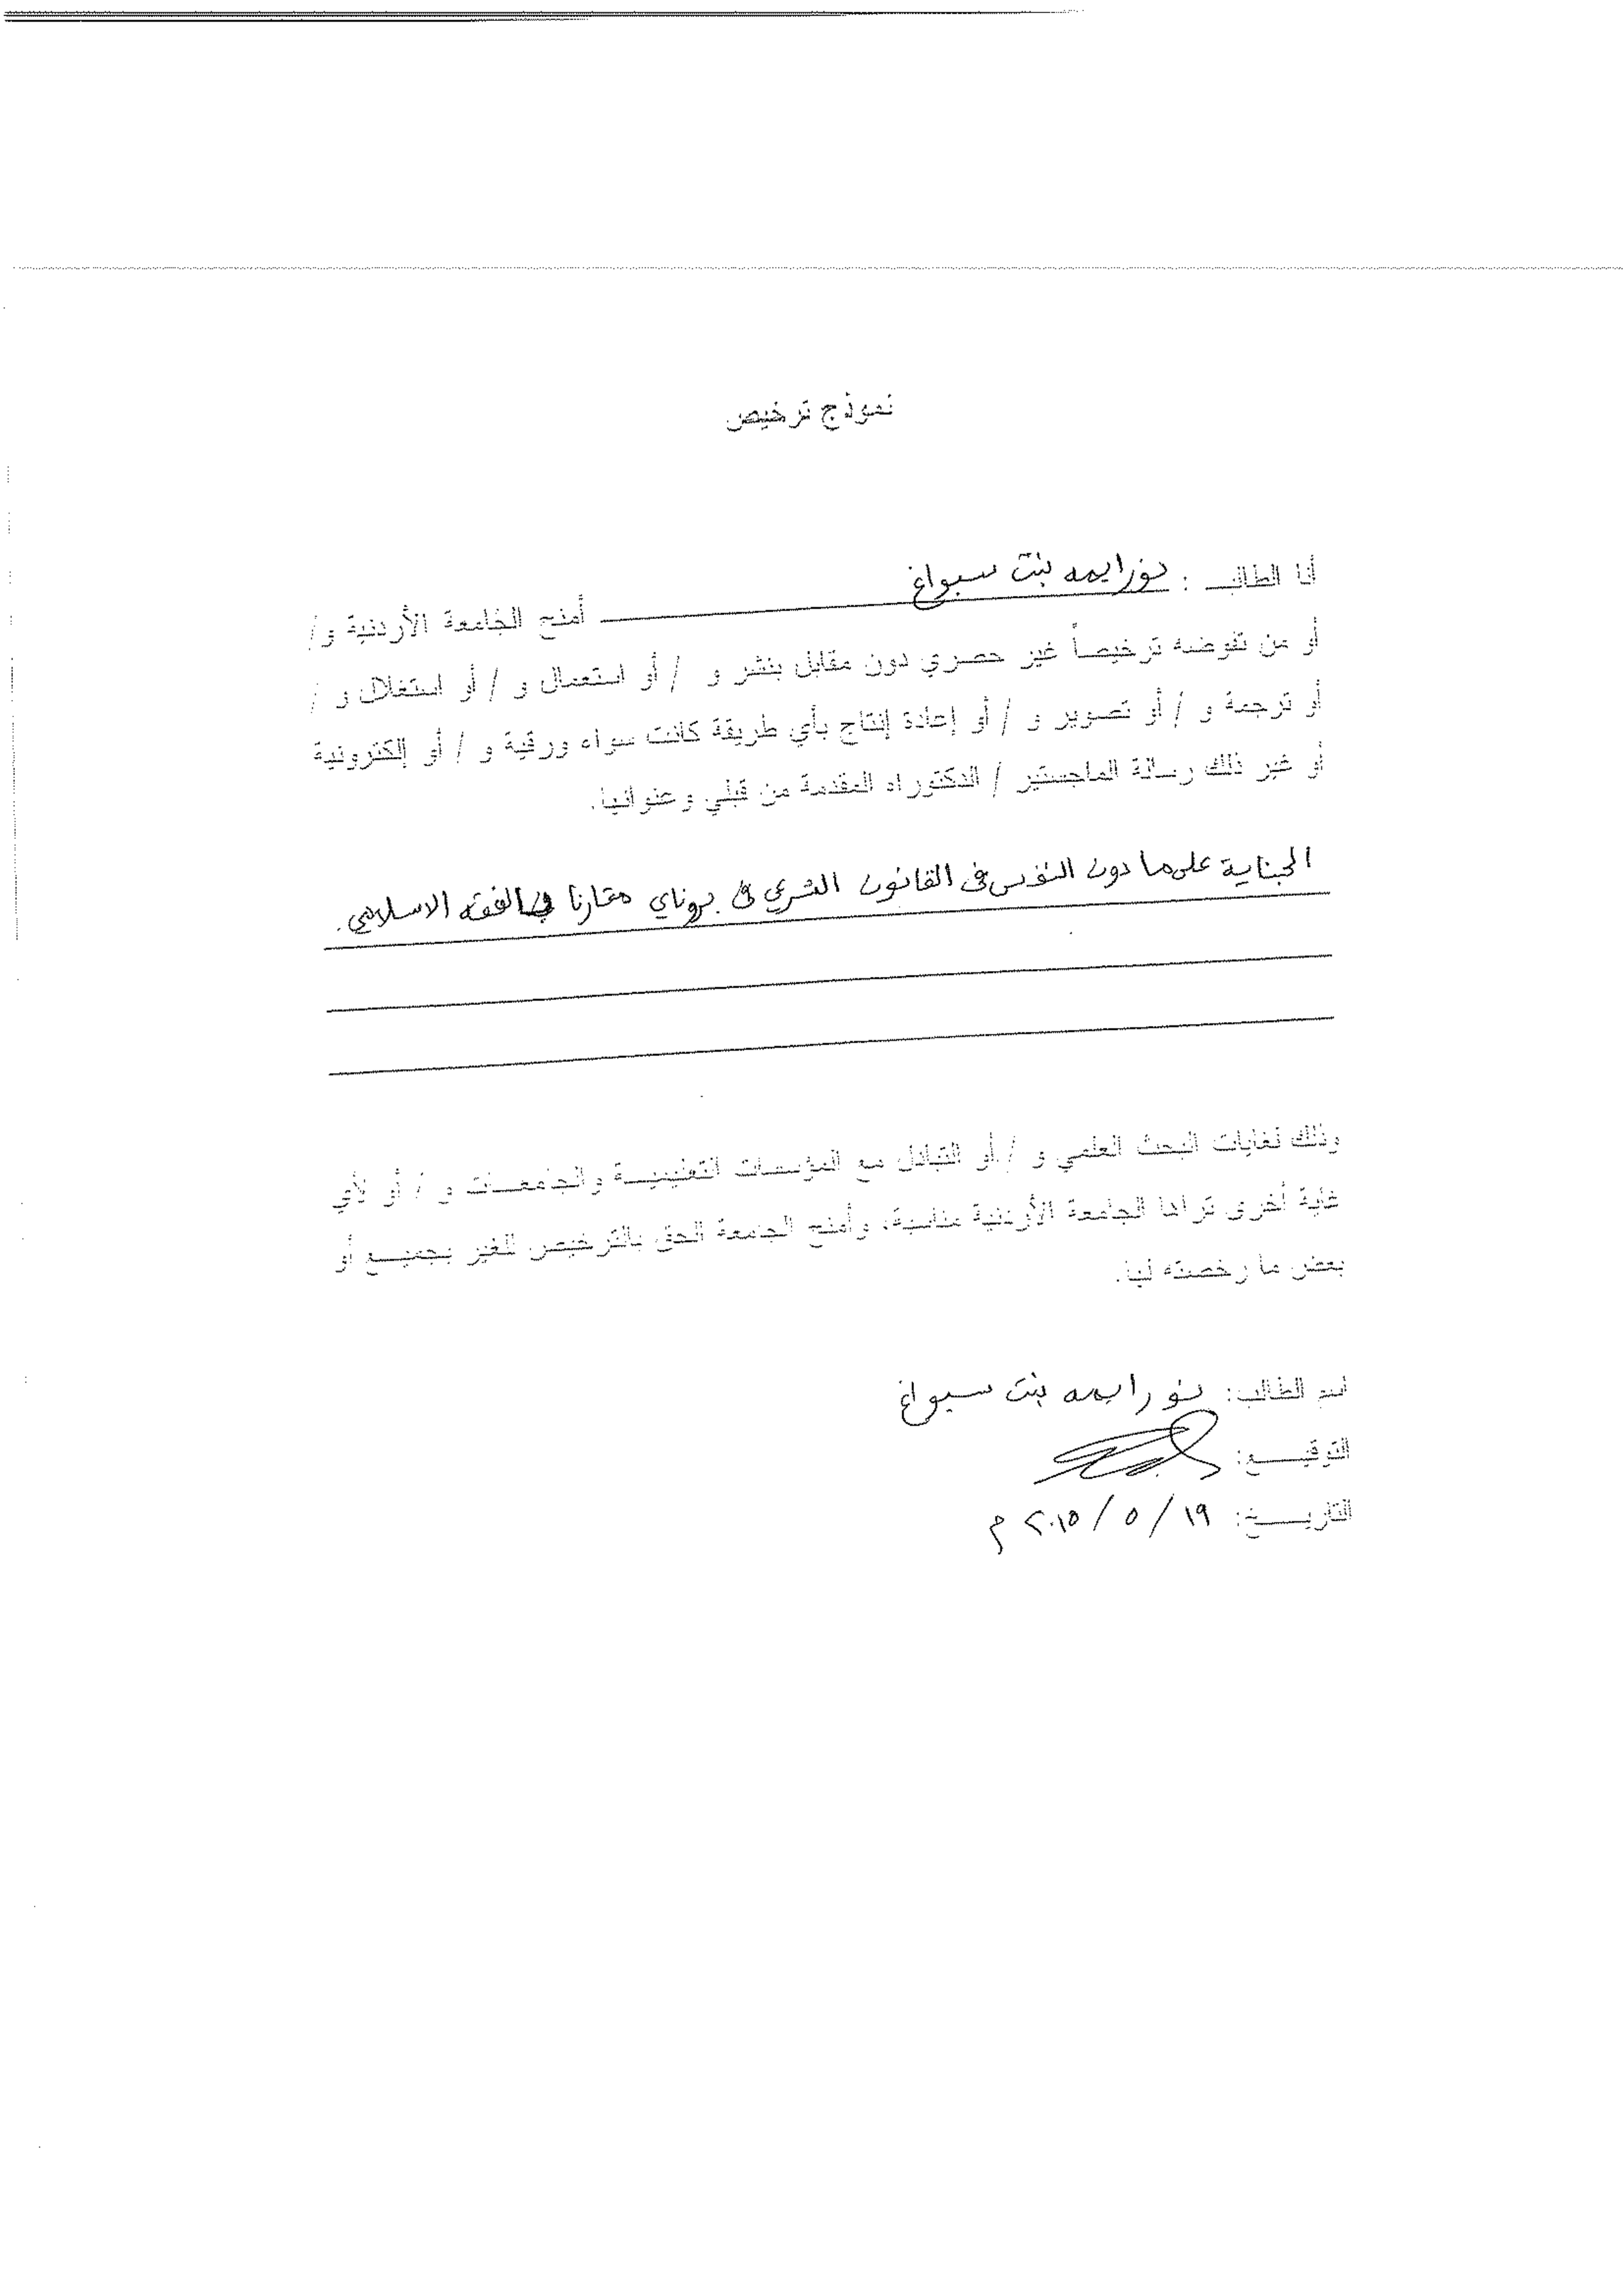 نموذج ترخيص
أنا الطالب : نورايمه بنت سيواغ أمنح الجامعة الأردنية و/
أو من تفوضه ترخيصاً غير حصري دون مقابل بنشر و / أو استعمال و / أو استغلال و /
أو ترجمة و / أو تصوير و / أو إعادة إنتاج بأي طريقة كانت سواء ورقية و / أو إلكترونية
أو غير ذلك رسالة الماجستير / الدكتوراه المقدمة من قبلي وعنوانها.
الجناية على ما دون النفس في القانون الشرعي في بروناي مقارنا بالفقه الاسلامي.
وذلك لغايات البحث العلمي و / أو التبادل مع المؤسسات التعليمية والجامعات و / أو لأي
غاية أخرى تراها الجامعة الأردنية مناسبة، وأمنح الجامعة الحق بالترخيص للغير بجميع أو
بعض ما رخصته لها.
اسم الطالب: نورايمه بنت سيواغ
التوقيع:
التاريخ: ١٩ / ٥ / ٢٠١٥ م